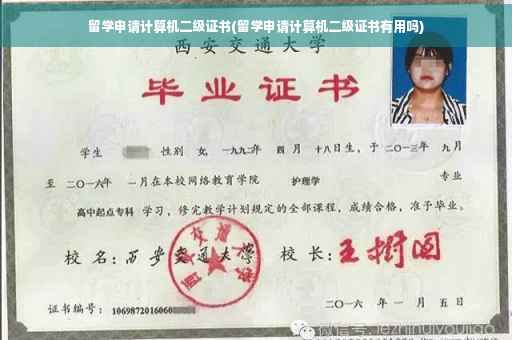 留学申请计算机二级证书(留学申请计算机二级证书有用吗)
西安交通大学
毕业证书
学生 性别 女, 一九九二年 四 月 十八日生, 于 二〇一三年 九月
至 二〇一六年 一月在本校网络教育学院 护理学 专业
高中起点专科 学习, 修完教学计划规定的全部课程, 成绩合格, 准予毕业。
校 名: 西安交通大学 校 长: 王树国
西安交通大学
证书编号: 1069872016060
二〇一六 年 一 月 五 日
微信号: jezhinuiyoujiao